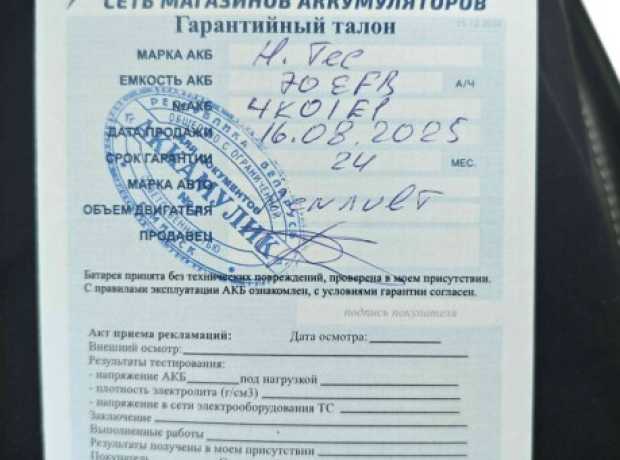 СЕТЬ МАГАЗИНОВ АККУМУЛЯТОРОВ
Гарантийный талон
МАРКА АКБ H. Tec
ЕМКОСТЬ АКБ 70 EFB А/Ч
№АКБ 4K01E1
ДАТА ПРОДАЖИ 16.08.2025
СРОК ГАРАНТИИ 24 МЕС.
МАРКА АВТО
ОБЪЕМ ДВИГАТЕЛЯ
ПРОДАВЕЦ
РЕСПУБЛИКА БЕЛАРУСЬ
ОБЩЕСТВО С ОГРАНИЧЕННОЙ
для документов
АККАМУЛИК
Батарея принята без технических повреждений, проверена в моем присутствии.
С правилами эксплуатации АКБ ознакомлен, с условиями гарантии согласен.
подпись покупателя
Акт приема рекламаций: Дата осмотра:
Внешний осмотр:
Результаты тестирования:
- напряжение АКБ под нагрузкой
- плотность электролита (г/см3)
- напряжение в сети электрооборудования ТС
Заключение
Выполненные работы
Результаты получены в моем присутствии
Покупатель